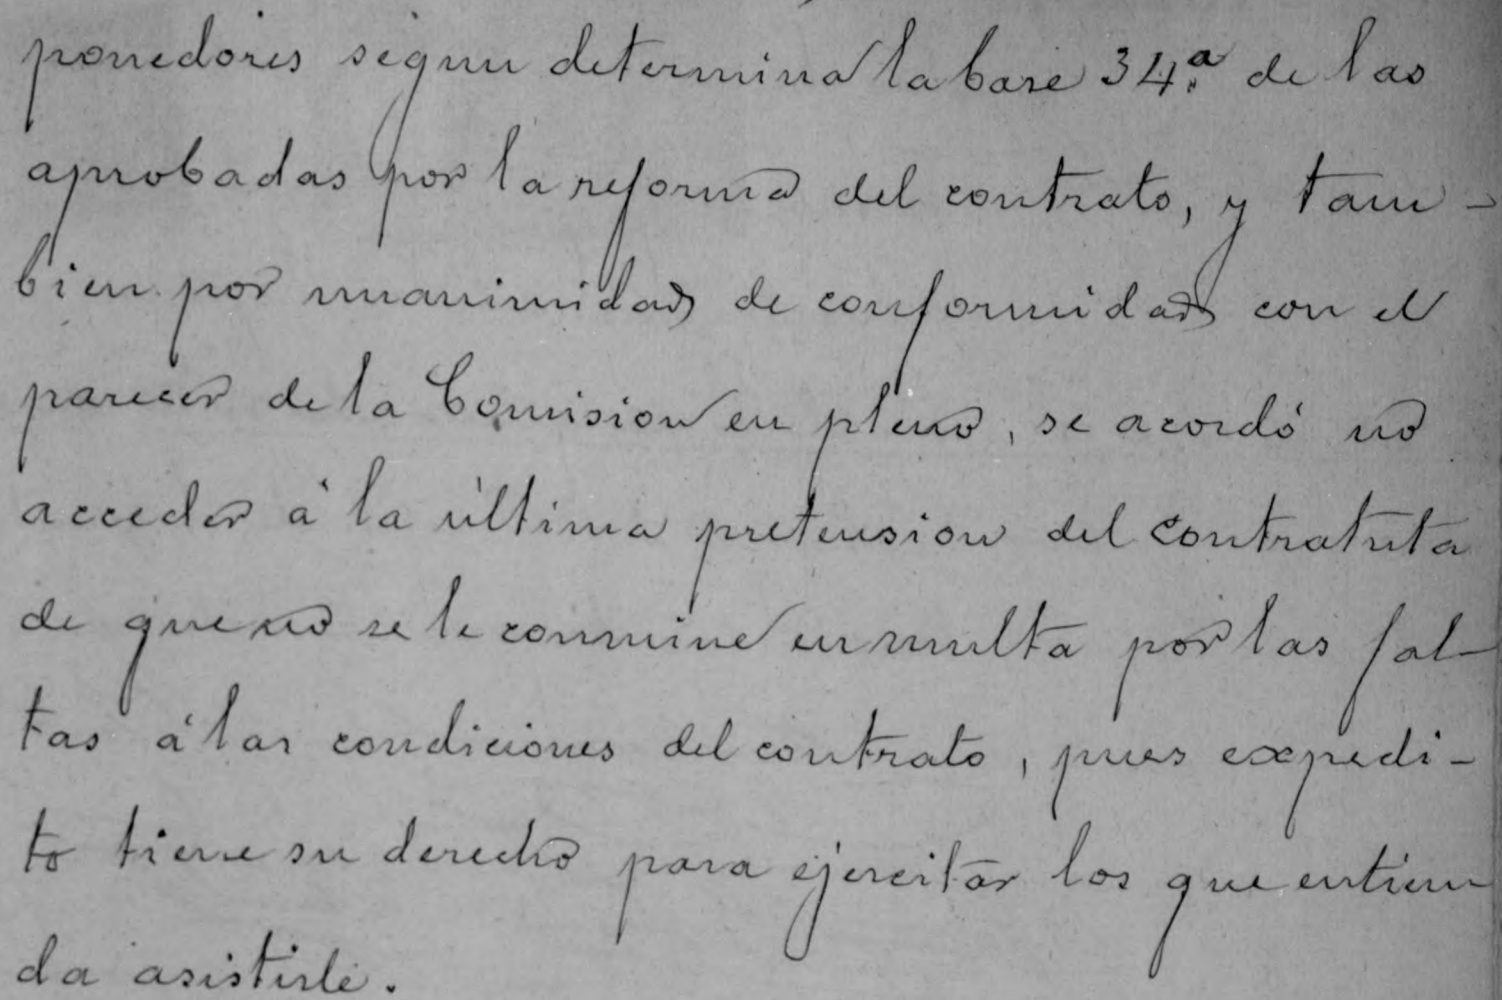 ponedores segun determina la base 34.ª de las
aprobadas por la reforma del contrato, y tam-
bien por unanimidad de conformidad con el
parecer de la Comision en pleno, se acordó no
acceder á la última pretension del contratista
de que no se le conmine en multa por las fal-
tas á las condiciones del contrato, pues expedi-
to tiene su derecho para ejercitar los que entien
da asistirle.